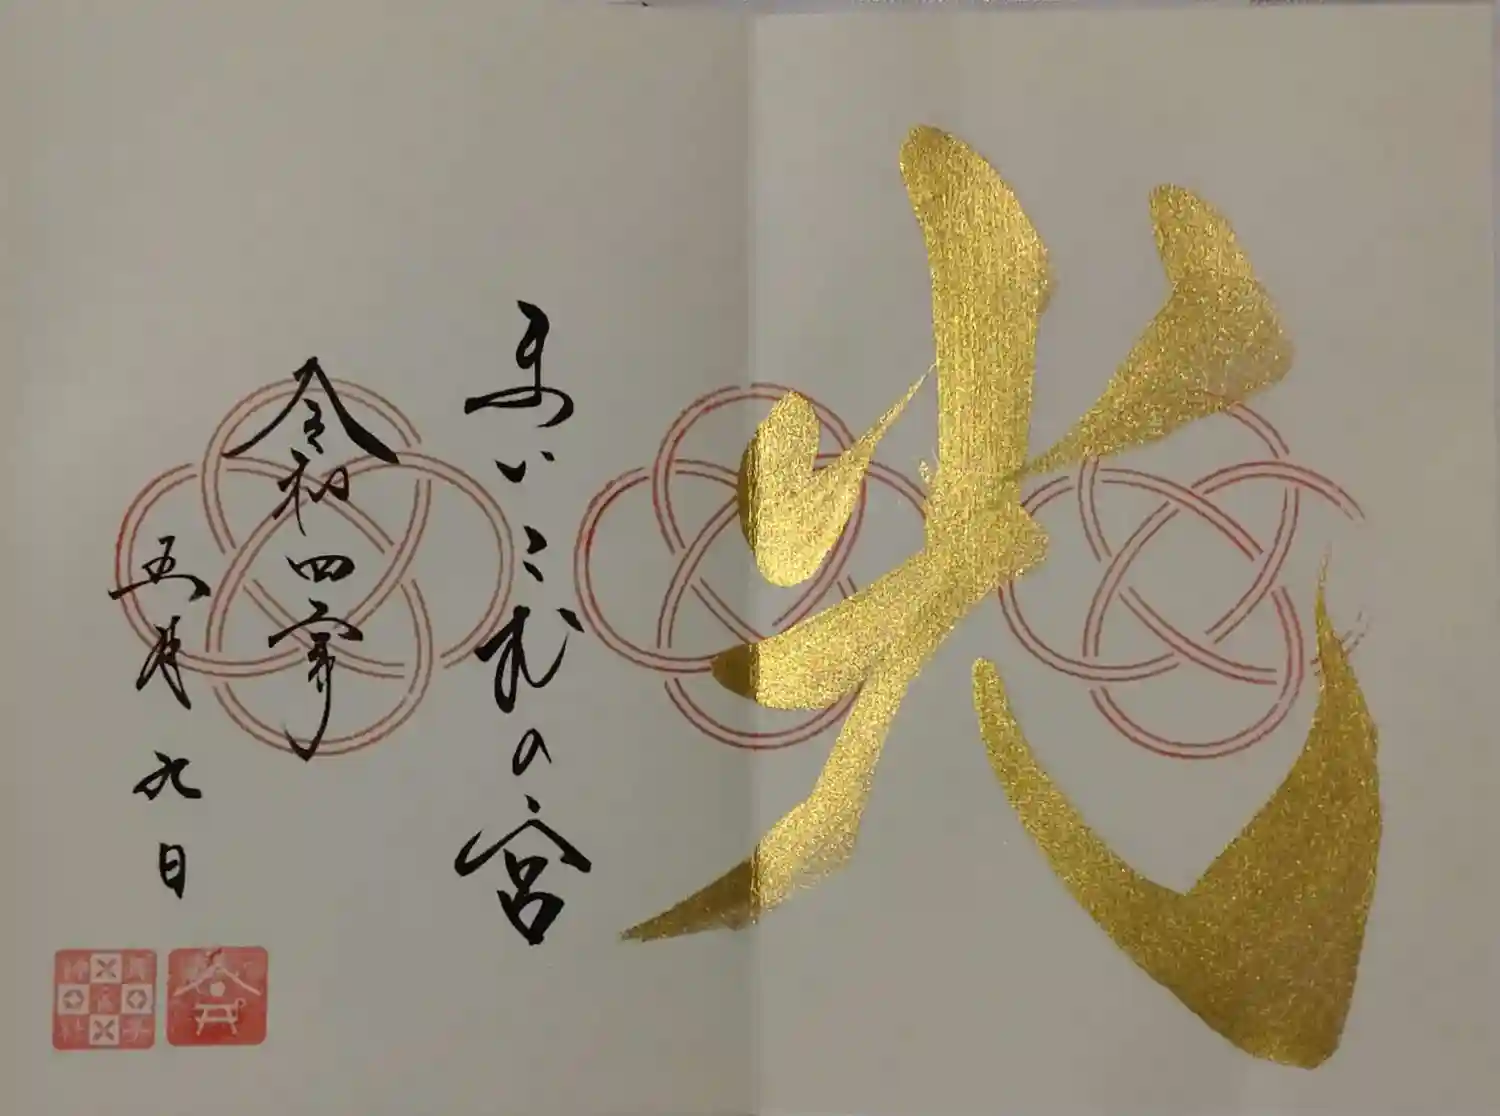 光
まいこむの宮
令和四年
五月九日